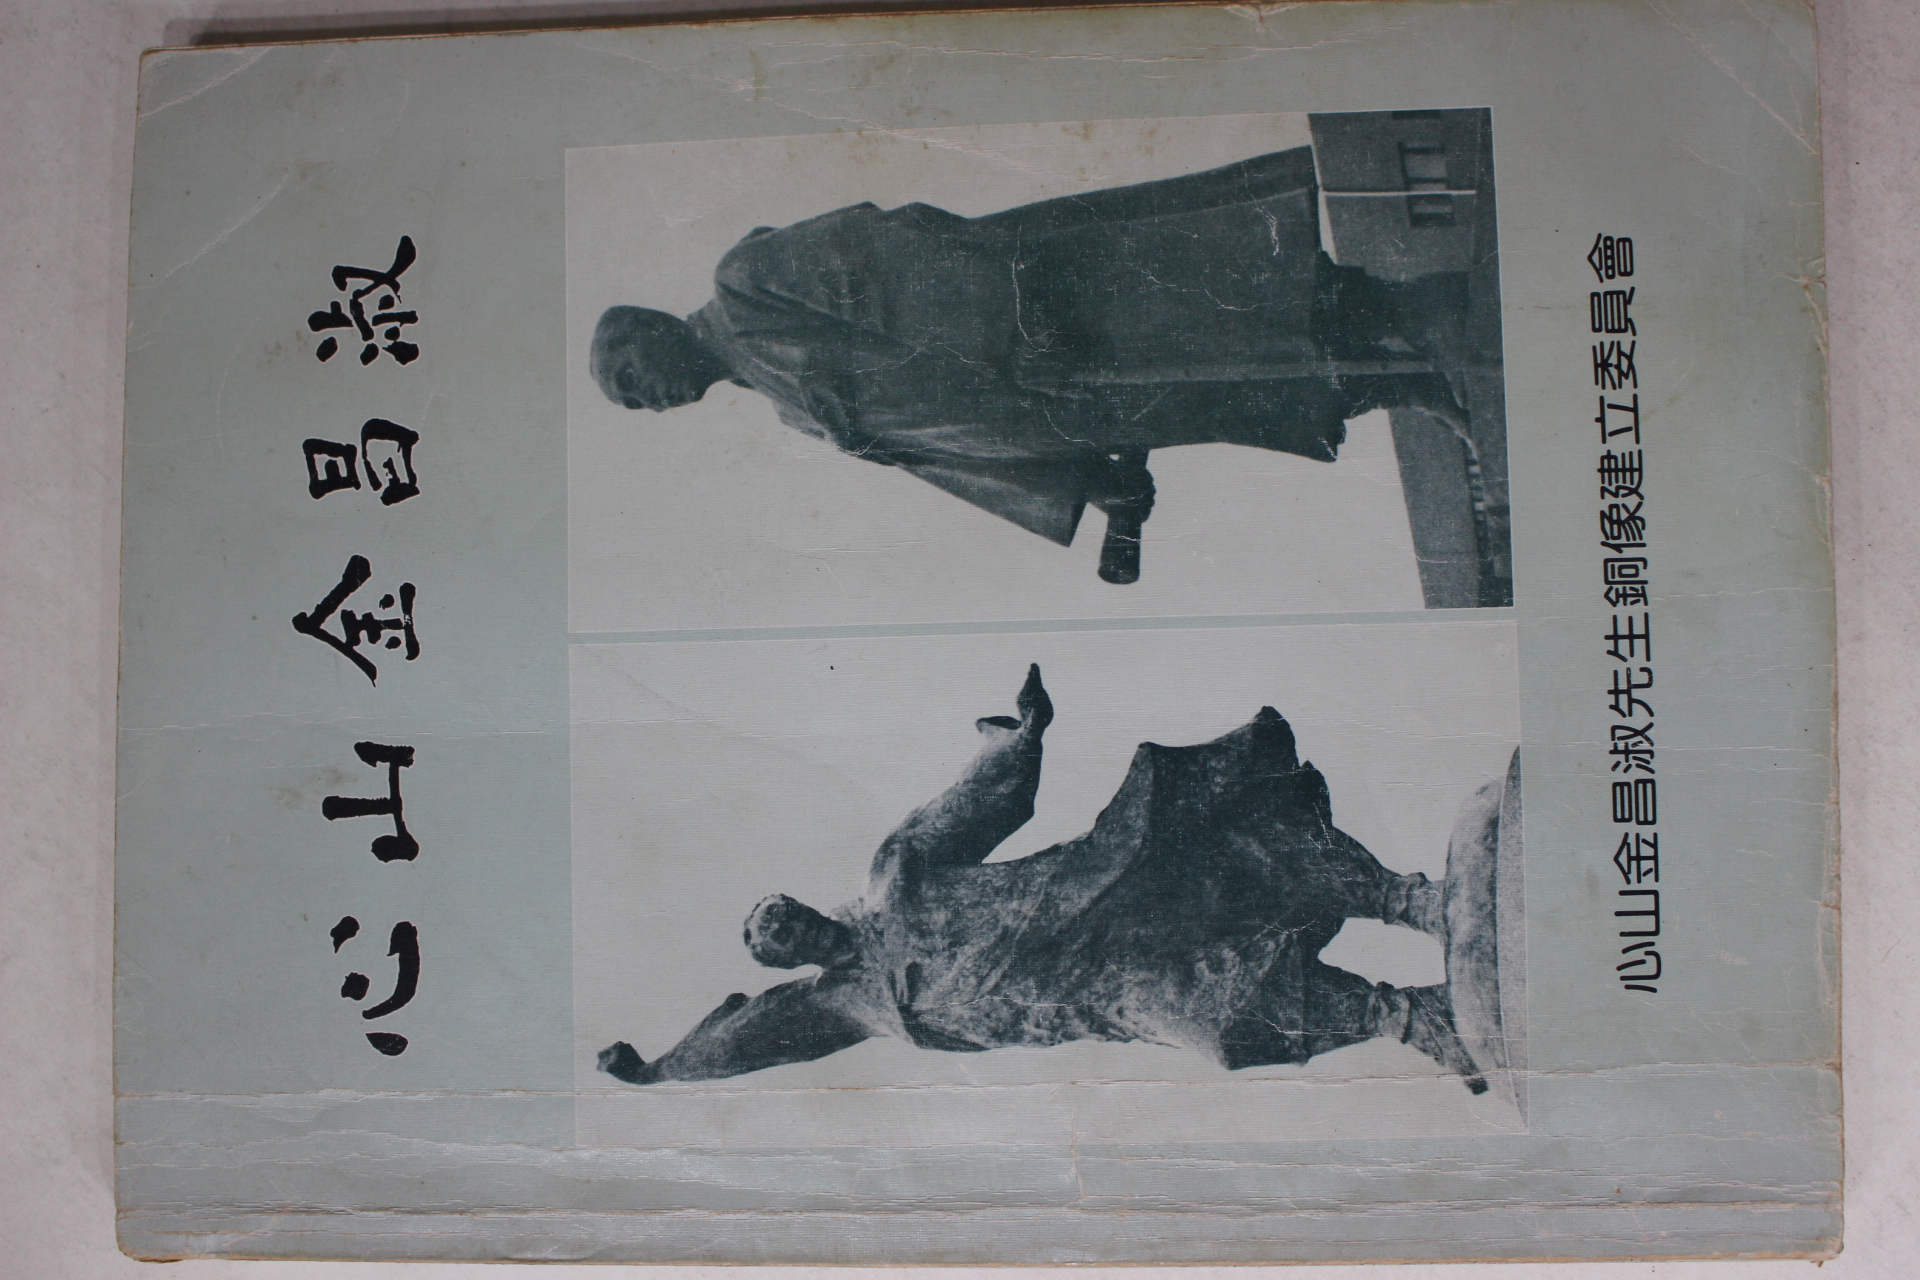 心山金昌淑
心山金昌淑先生銅像建立委員會